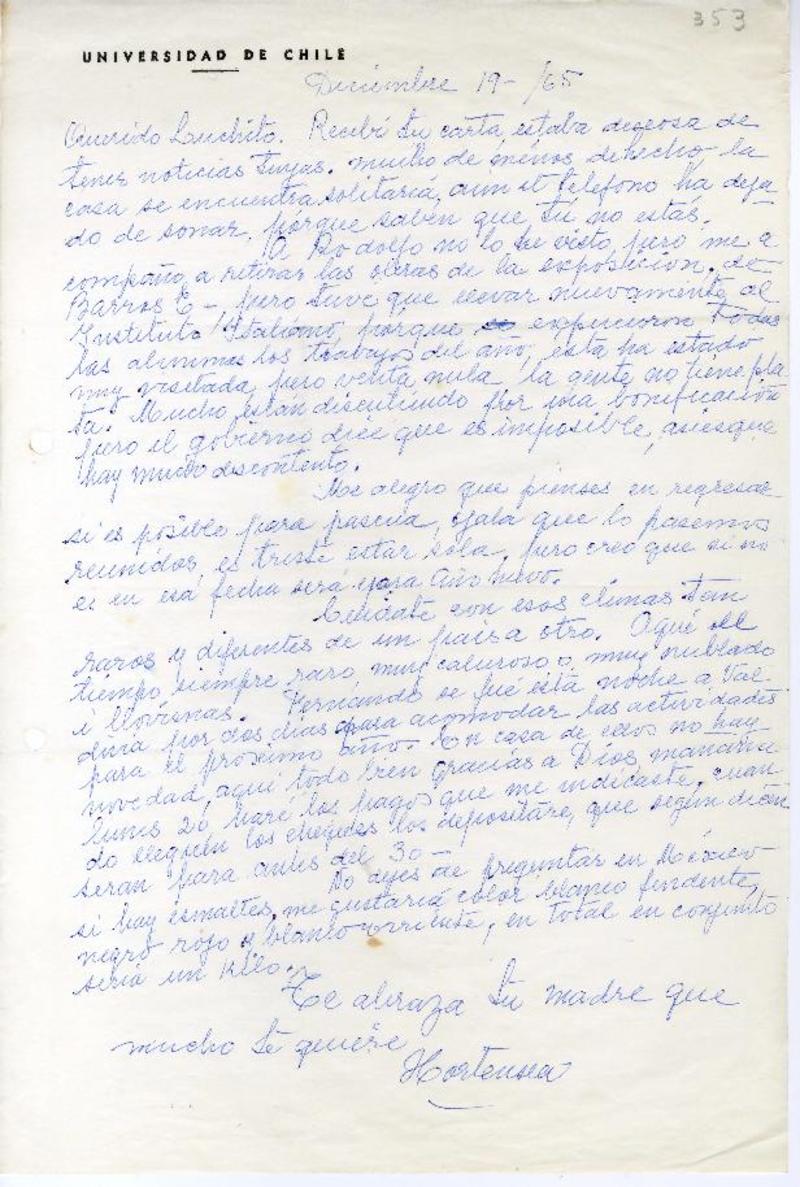 353
UNIVERSIDAD DE CHILE
Diciembre 19-/65
Querido Luchito. Recibí tu carta, estaba deseosa de
tener noticias tuyas. mucho de menos de hecho, la
casa se encuentra solitaria, aún el teléfono ha deja
do de sonar, porque saben que tú no estás.
A Rodolfo no lo he visto, pero me a
compañó a retirar las obras de la exposición, de
Barros E- pero tuve que llevar nuevamente al
Instituto Italiano, porque expusieron todas
las alumnas los trabajos del año, esta ha estado
muy visitada, pero venta nula, la gente no tiene pla
ta. Mucho están discutiendo por una bonificación
pero el gobierno dice que es imposible, asies que
hay mucho descontento.
Me alegro que pienses en regresar
si es posible para pascua, ojala que lo pasemos
reunidos, es triste estar sola, pero creo que si no
es en esa fecha será para Año nuevo.
Cuidate con esos climas tan
raros y diferentes de un país a otro. Aquí el
tiempo siempre raro, muy caluroso o, muy nublado
i lloviznas. Fernando se fué esta noche a Val
divia por dos días para acomodar las actividades
para el próximo año. En casa de ellos no hay
novedad, aquí todo bien gracias a Dios, mañana
lunes 20 haré los pagos que me indicaste, cuan
do lleguen los cheques los depositare, que según dicen
seran para antes del 30-
No dejes de preguntar en México
si hay esmaltes, me gustaría color blanco fundente,
negro rojo y blanco corriente, en total en conjunto
seria un Kilo.
Te abraza tu madre que
mucho te quiere
Hortensia